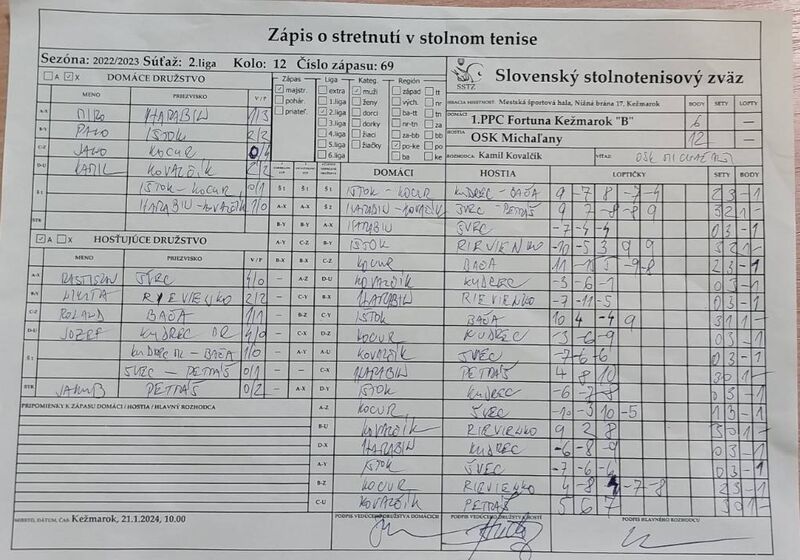 Zápis o stretnutí v stolnom tenise
Sezóna: 2022/2023 Súťaž: 2.liga Kolo: 12 Číslo zápasu: 69
Slovenský stolnotenisový zväz
SSTZ
A X DOMÁCE DRUŽSTVO
MENO PRIEZVISKO V/P
MIRO HARABIN 1/3
PAVO IŠTOK 2/2
JANO KOCUR
KAMIL KOVALČÍK 2/2
IŠTOK - KOCUR 0/1
HARABIN - KOVALČÍK 1/0
Zápas
majstr.
pohár.
priateľ.
Liga
extra
1.liga
2.liga
3.liga
4.liga
5.liga
6.liga
Kateg.
muži
ženy
dorci
dorky
žiaci
žiačky
Región
západ tt
vých. nr
ba-tt tn
nr-tn za
za-bb bb
po-ke po
ba ke
HRACIA MIESTNOSŤ: Mestská športová hala, Nižná brána 17, Kežmarok BODY SETY LOPTY
DOMÁCI 1.PPC Fortuna Kežmarok "B" 6
HOSTIA OSK Michaľany 12
ROZHODCA: Kamil Kovalčík VÍŤAZ: OSK MICHAĽANY
A X HOSŤUJÚCE DRUŽSTVO
MENO PRIEZVISKO V/P
RASTISLAV ŠVEC 4/0
NIKITA RIEVIENKO 2/2
ROLAND BAČA 1/1
JOZEF KUDREC ML 4/0
KUDREC ML - BAČA 1/0
ŠVEC - PETRÁŠ 0/1
JAKUB PETRÁŠ 0/2
DOMÁCI HOSTIA LOPTIČKY SETY BODY
Š1 Š1 IŠTOK - KOCUR KUDREC - BAČA 9 -7 8 -7 -4 2 3 - 1
A-X X-X HARABIN - KOVALČÍK ŠVEC - PETRÁŠ 9 7 -8 -8 9 3 2 1 -
B-Y A-Y HARABIN ŠVEC -7 -4 -4 0 3 - 1
A-Y C-Z B-Y IŠTOK RIEVIENKO -10 -5 3 9 9 3 2 1 -
B-X C-Z KOCUR BAČA 2 3 - 1
A-Z D-U KOVALČÍK KUDREC -3 -6 -1 0 3 - 1
C-Y B-X HARABIN RIEVIENKO -7 -11 -5 0 3 - 1
B-Z C-Y IŠTOK BAČA 10 4 -4 9 3 1 1 -
C-X D-Z KOCUR KUDREC -3 -6 -9 0 3 - 1
A-Y A-U KOVALČÍK ŠVEC -7 -6 -6 0 3 - 1
C-X HARABIN PETRÁŠ 4 8 10 3 0 1 -
D-Y IŠTOK KUDREC -6 -7 -8 0 3 - 1
A-Z KOCUR ŠVEC -10 -3 10 -5 1 3 - 1
B-U KOVALČÍK RIEVIENKO 9 2 8 3 0 1 -
D-X HARABIN KUDREC -6 -8 -9 0 3 - 1
A-Y IŠTOK ŠVEC -7 -6 -6 0 3 - 1
B-Z KOCUR RIEVIENKO 2 3 - 1
C-U KOVALČÍK PETRÁŠ 5 6 7 3 0 1 -
PRIPOMIENKY K ZÁPASU DOMÁCI / HOSTIA / HLAVNÝ ROZHODCA
MIESTO, DÁTUM, ČAS: Kežmarok, 21.1.2024, 10.00
PODPIS VEDÚCEHO DRUŽSTVA DOMÁCICH PODPIS VEDÚCEHO DRUŽSTVA HOSTÍ PODPIS HLAVNÉHO ROZHODCU